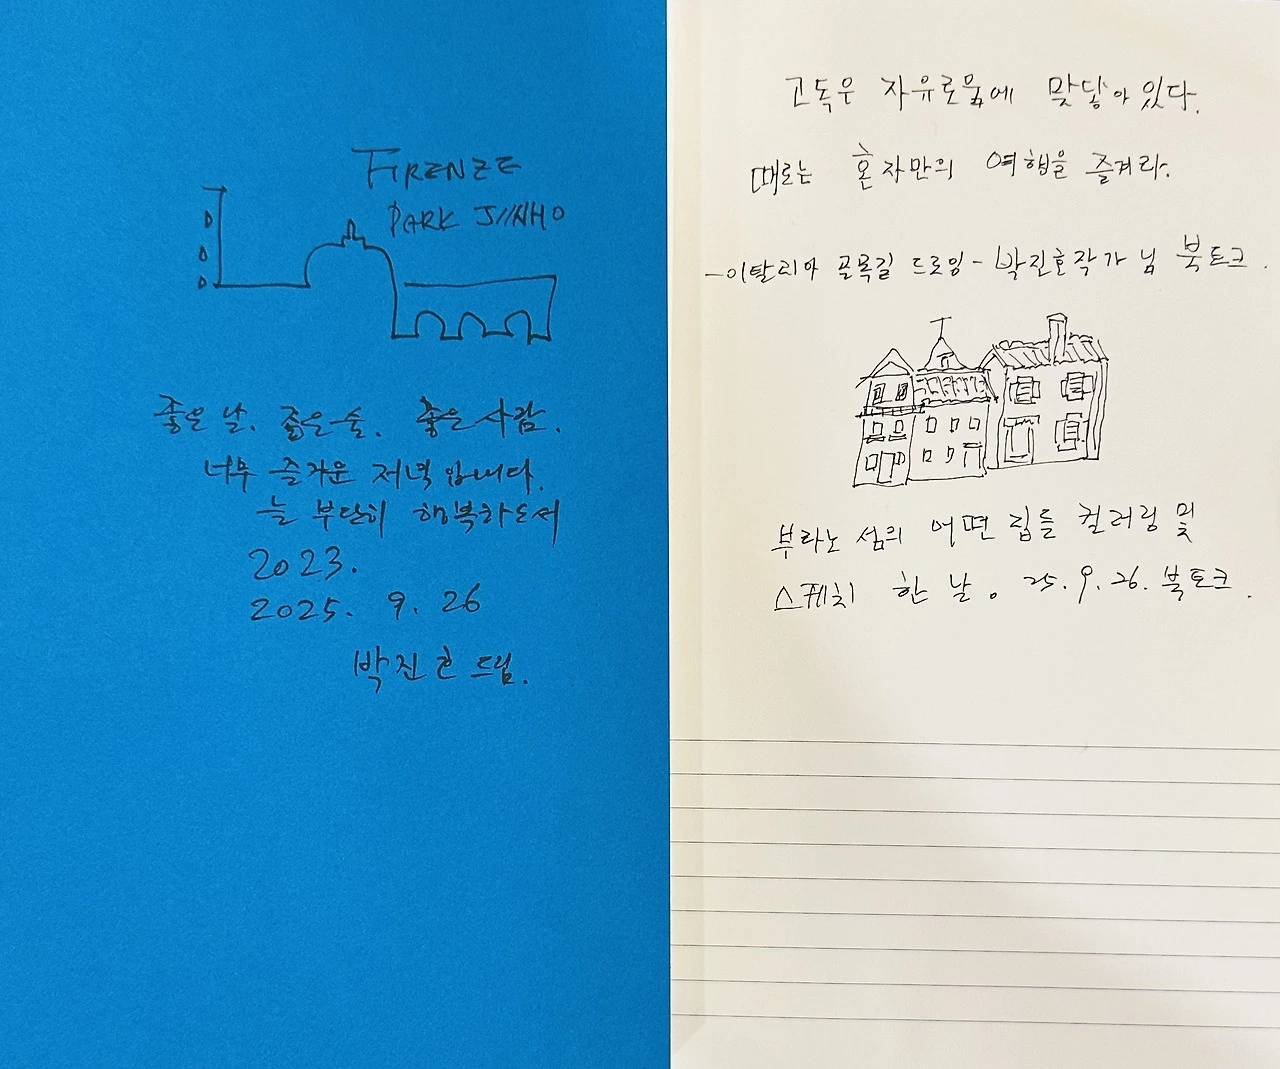 FIRENZE
PARK JINHO
좋은 날. 좋은 술. 좋은 사람.
너무 즐거운 저녁입니다.
늘 부단히 행복하소서
2023.
2025. 9. 26
박진호 드림.
고독은 자유로움에 맞닿아 있다.
때로는 혼자만의 여행을 즐겨라.
-이탈리아 골목길 드로잉- 박진호작가님 북토크.
부라노 섬의 어떤 집들 컬러링 및
스케치 한 날. 25. 9. 26. 북토크.